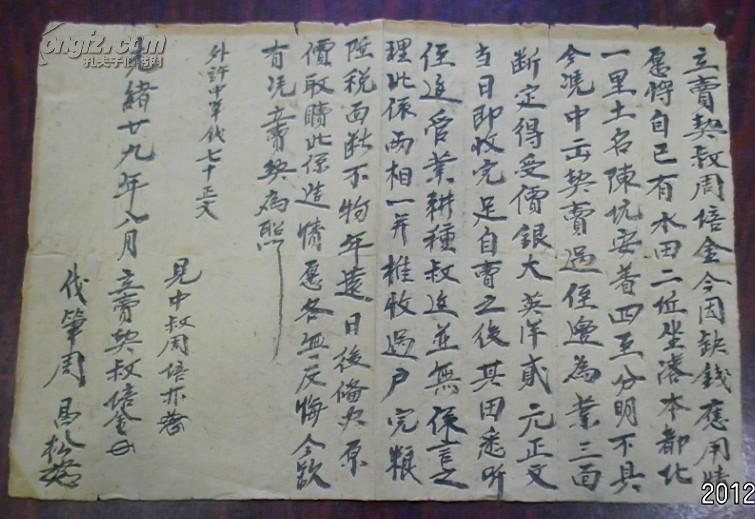 立賣契叔周培金今因缺錢應用情
愿將自己有水田二坵坐落本都化
一里土名陳坑安着四至分明不具
今凴中立契賣過侄邊為業三面
断定得受價銀大英洋貳元正文
當日即收完足自賣之後其田悉听
侄邊管業耕種叔邊並無係言之
理此係兩相一并推收過户完粮
陞税面断不拘年遠日後俻办原
價取贖此係造情愿各無反悔今欲
有凴立賣契為照
外許中筆代七十正文
光緒廿九年八月立賣契叔培金
見中叔周培
代筆周昌松
kongfz.com
孔夫子旧书网
2012